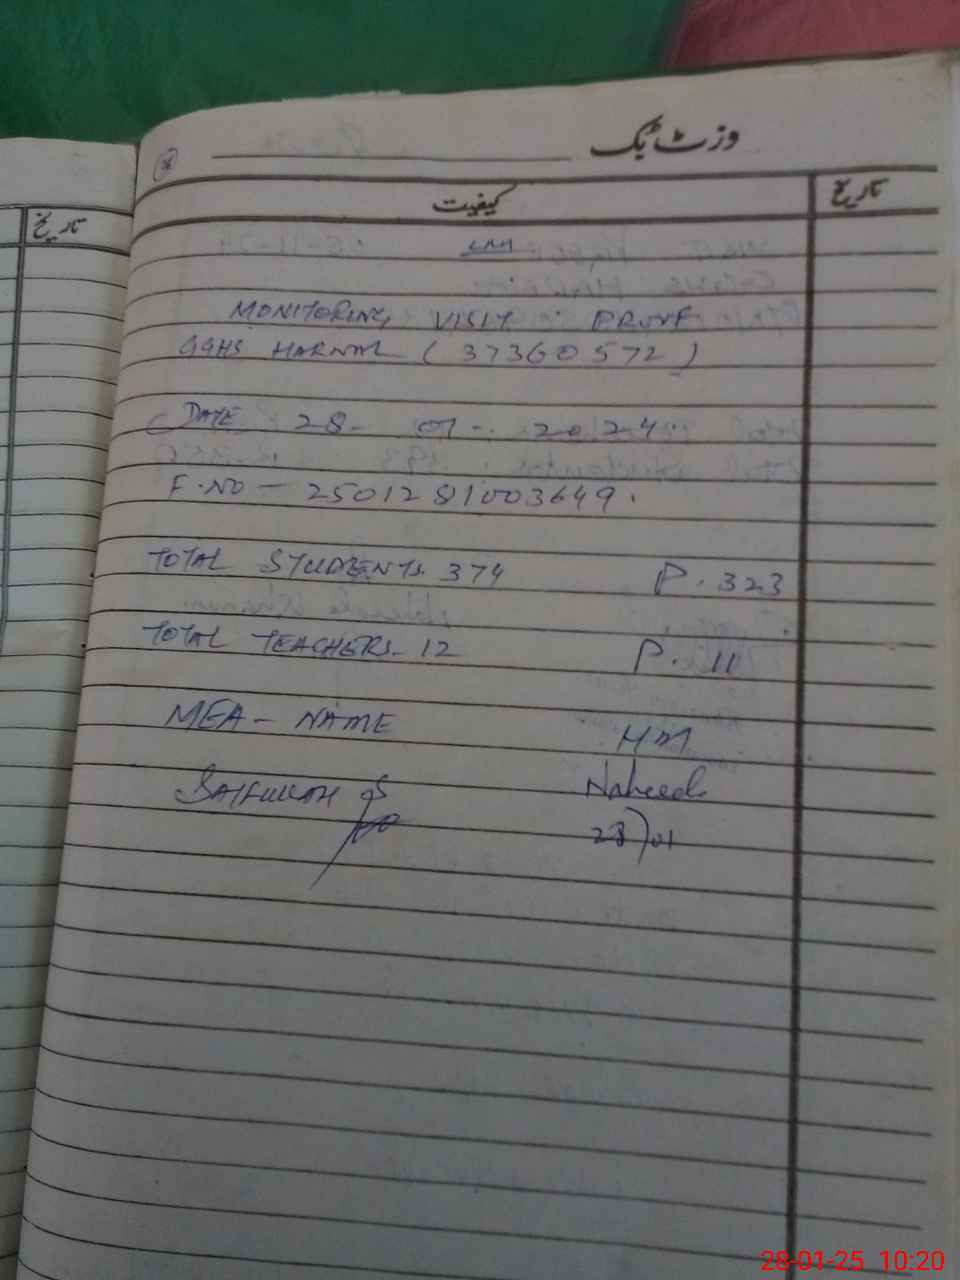 وزٹ بک
تاریخ
کیفیت
تاریخ
MONITORING VISIT PROVF
GGHS HARNAL (37360572)
DATE 28-01-2024.
F.NO - 2501281003649.
TOTAL STUDENTS. 374 P. 323
TOTAL TEACHERS. 12 P. 11
MEA - NAME HM
SAIFULLAH Naheed
28/01
28-01-25 10:20